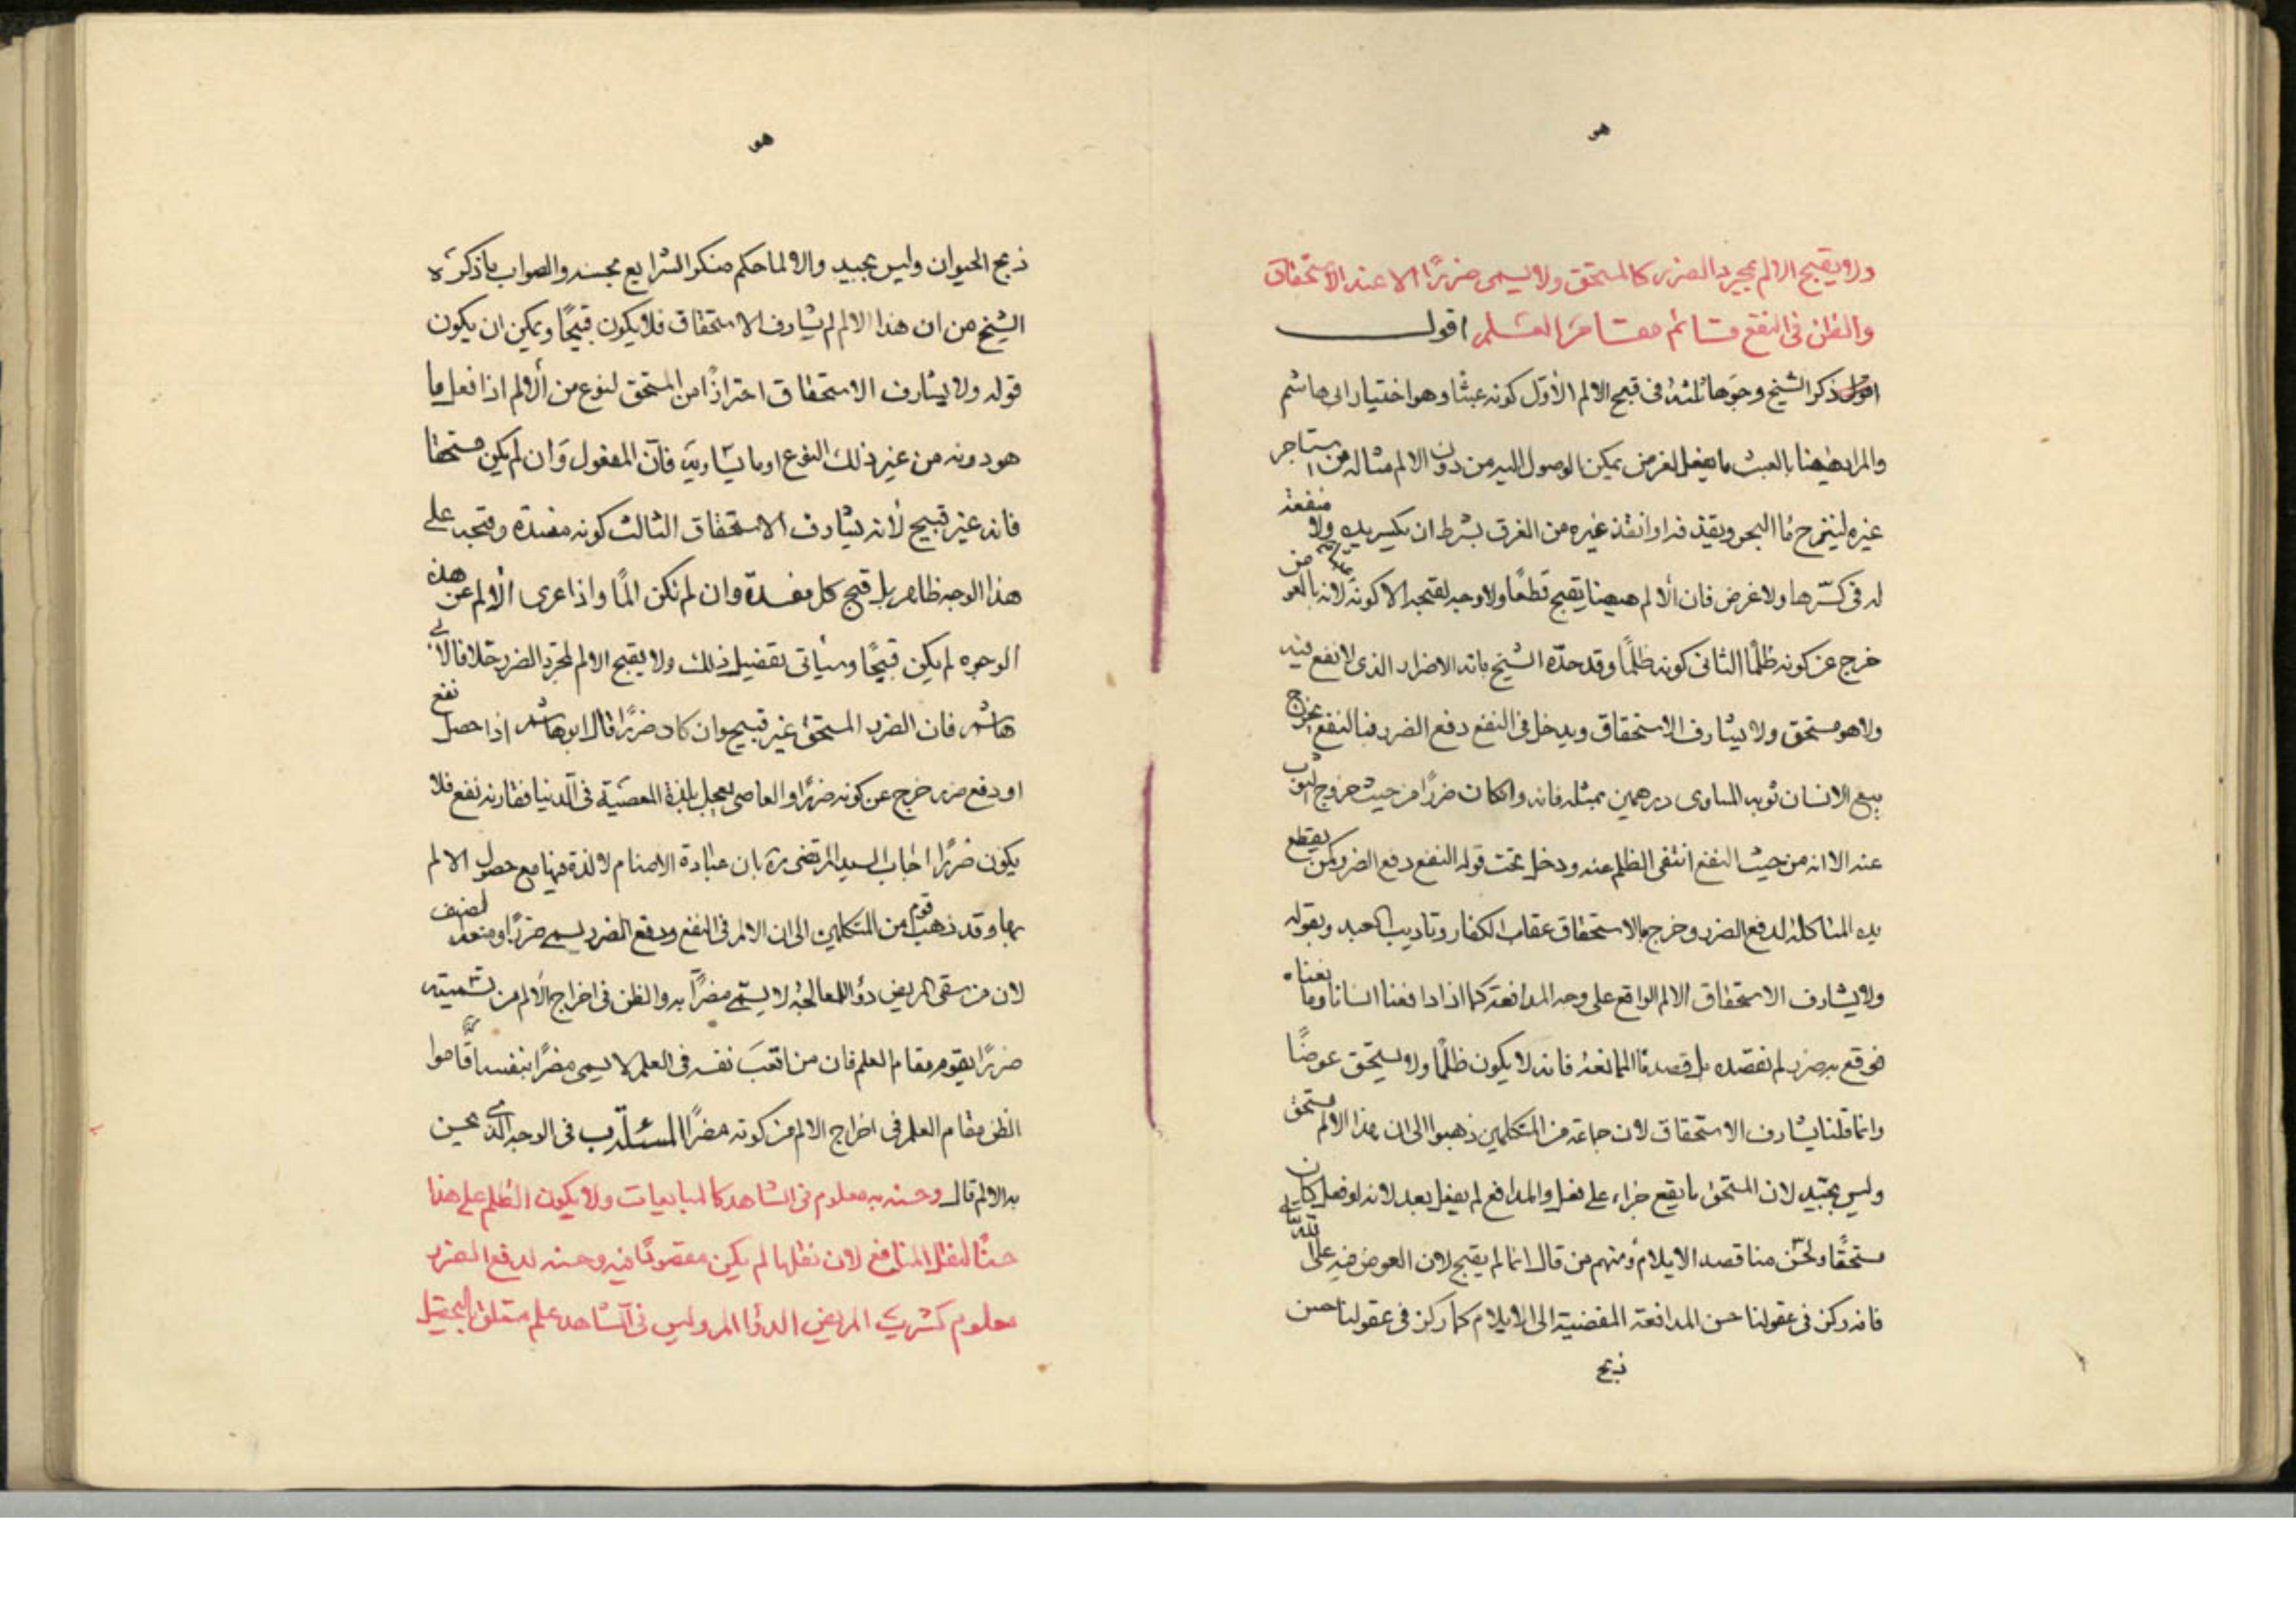 هو
ولا يقبح الالم بمجرد الضرر كالمستحق ولا يسمى ضررًا الا عند الاستحقاق
والظن فى النفع قائم مقام العلم اقول
اقول ذكر الشيخ وجوها ثلثة فى قبح الالم الأوّل كونه عبثا وهو اختيار ابى هاشم
والمراد ههنا بالعبث ما يفعل لغرض يمكن الوصول اليه من دون الالم مثاله من استاجر
غيره لينزح ماء البحر ويقذفه او انقذ غيره من الغرق بشرط ان يكسر يده ولا منفعة
له فى كسرها ولا غرض فان ألالم ههنا يقبح قطعًا ولا وجه لقبحه الا كونه لانه بالعوض
خرج عن كونه ظلمًا الثانى كونه ظلمًا وقد حدّه الشيخ بانه الاضرار الذى لا نفع فيه
ولا هو مستحق ولا يشارف الاستحقاق ويدخل فى النفع دفع الضرر فبالنفع يخرج
بيع الانسان ثوبه المساوى درهمين بمثله فانه وان كان ضررًا من حيث خروج الثوب
عنه الا انه من حيث النفع انتفى الظلم عنه ودخل تحت قوله النفع دفع الضرر كمن يقطع
يده المتاكلة لدفع الضرر وخرج بالاستحقاق عقاب الكفار وتاديب العبد وبقوله
ولا يشارف الاستحقاق الالم الواقع على وجه المدافعة كما اذا دافعنا انسانا وما نعناه
فوقع به ضرر لم نقصده بل قصدنا الممانعة فانه لا يكون ظلمًا ولا يستحق عوضًا
وانما قلنا يشارف الاستحقاق لان جماعة من المتكلمين ذهبوا الى ان هذا الالم مستحق
وليس بجيد لان المستحق ما يقع جزاء على فعل والمدافع لم يفعل بعد لانه لو فعل كان
مستحقًا ولحسن منا قصد الايلام ومنهم من قال انما لم يقبح لان العوض فيه على الله تعالى
فانه ركن فى عقولنا حسن المدافعة المفضية الى الايلام كما ركن فى عقولنا حسن
ذبح
هو
ذبح الحيوان وليس بجيد والا لما حكم منكر الشرايع بحسنه والصواب ما ذكره
الشيخ من ان هذا الالم لم يشارف الاستحقاق فلا يكون قبيحًا ويمكن ان يكون
قوله ولا يشارف الاستحقاق احترازًا من المستحق لنوع من ألالم اذا فعل ما
هو دونه من غير ذلك النوع او ما يساويه فانّ المفعول وان لم يكن مستحقا
فانه غير قبيح لأنه يشارف الاستحقاق الثالث كونه مفسدة وقبحه على
هذا الوجه ظاهر بل قبح كل مفسدة وان لم تكن المًا واذا عرى ألالم عن هذه
ألوجوه لم يكن قبيحًا وسيأتى تفصيل ذلك ولا يقبح الالم لمجرد الضرر خلافا لابى
هاشم فان الضرر المستحق غير قبيح وان كان ضررًا قال ابو هاشم اذا حصل نفع
او دفع ضرر خرج عن كونه ضررًا والعاصى يعجل بلذة المعصية فى الدنيا فقارنه نفع فلا
يكون ضررًا اجاب السيد المرتضى ره بان عبادة الاصنام لا لذة فيها مع حصول الالم
بها وقد ذهب قوم من المتكلمين الى ان الالم فى النفع ودفع الضرر يسمى ضررًا
لان من سقى المريض دواء للمعالجة لا يسمى مضرًا به والظن فى اخراج ألالم من تسميته
ضررًا يقوم مقام العلم فان من اتعب نفسه فى العلم لا يسمى مضرًا بنفسه اقاموا
الظن مقام العلم فى اخراج الالم من كونه مضرًا المسئلة ب فى الوجه الذى يحسن
به الالم قال وحسنه به معلوم فى الشاهد كالمبايعات ولا يكون الظلم على هذا
حسنًا لنقل المنافع لان نقلها لم يكن مقصودًا فيه وحسنه لدفع الضرر
معلوم كشرب المريض الدواء المر وليس فى الشاهد علم متعلق بالتحصيل